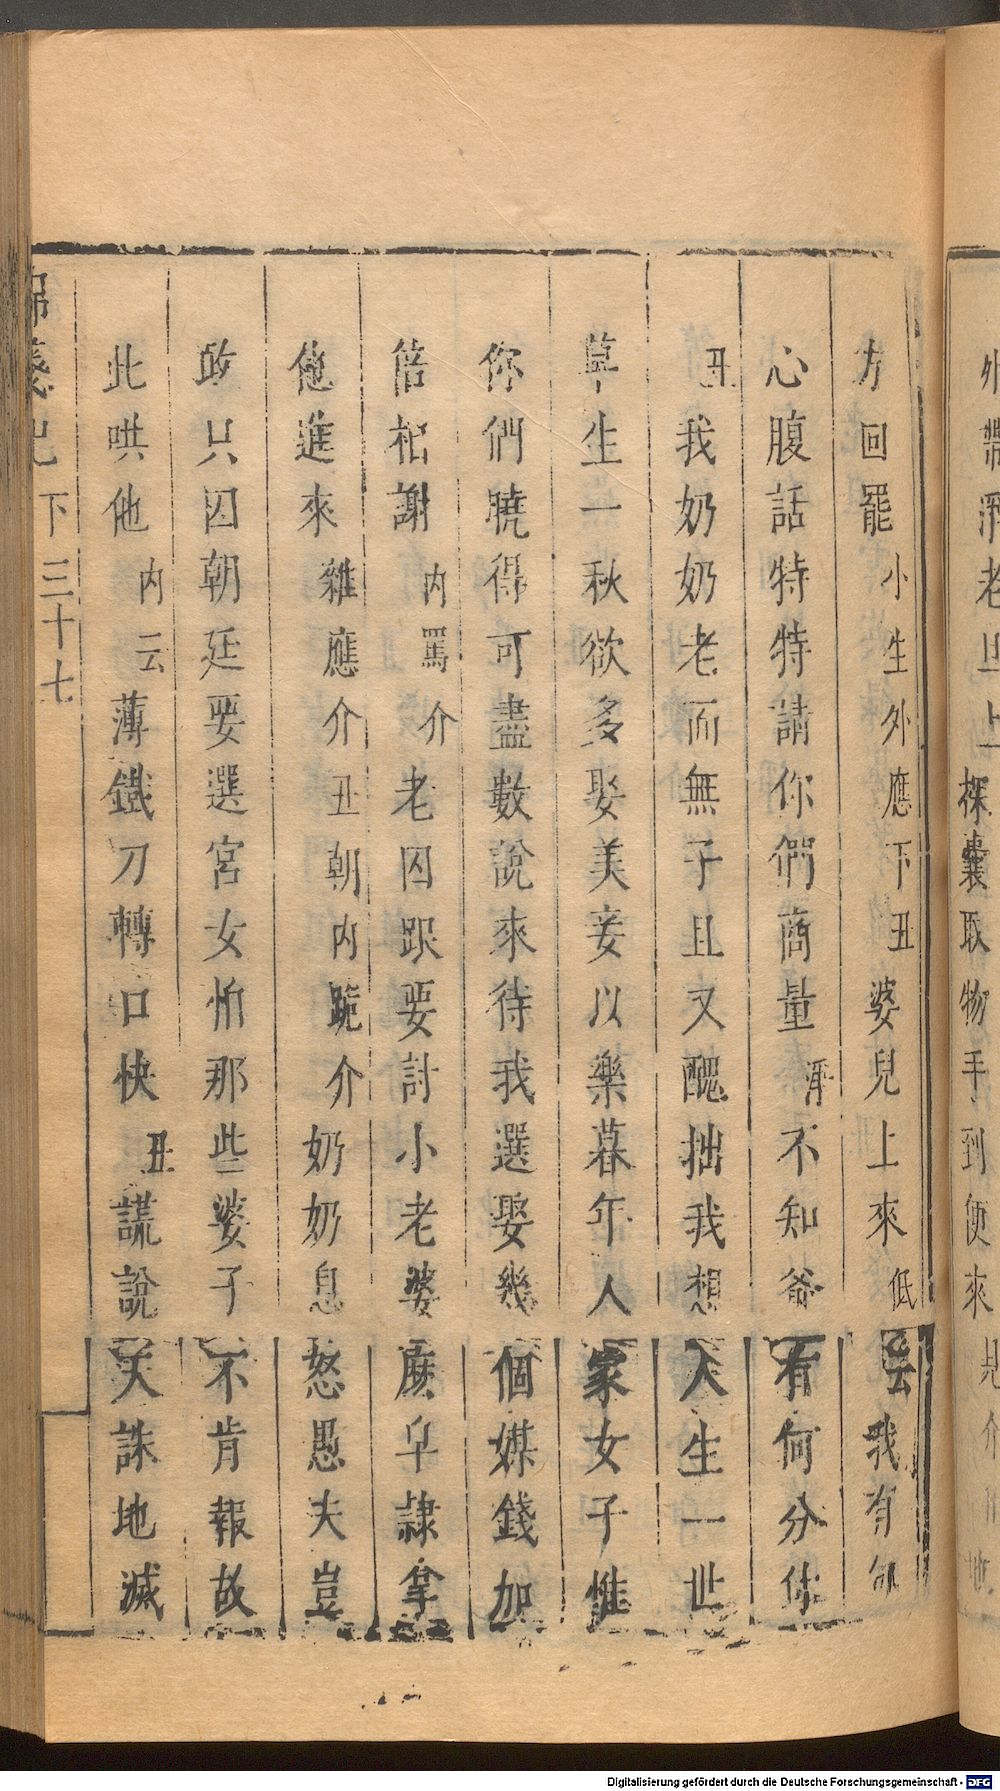 外
老旦上
探囊取物手到便來
見介
地
方回罷小生外應下丑婆兒上來低云我有句
心腹話特特請你們商量淨不知爺有何分付
丑我奶奶老而無子且又醜拙我想人生一世
草生一秋欲多娶美妾以樂暮年人家女子惟
你們曉得可盡數說來待我選娶幾個媒錢加
倍相謝内罵介老囚跟要討小老婆麽皁隷拿
他進來雜應介丑朝内跪介奶奶息怒愚夫豈
敢只因朝廷要選宮女怕那些婆子不肯報故
此哄他内云薄鐵刀轉口快丑謊說天誅地滅
箋記 下 三十七
Digitalisierung gefördert durch die Deutsche Forschungsgemeinschaft - DFG